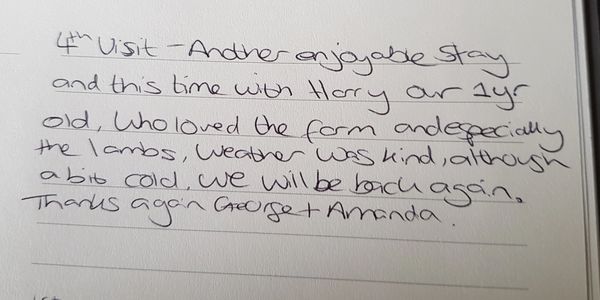 4th Visit - Another enjoyable stay
and this time with Harry our 1yr
old, Who loved the farm and especially
the lambs, Weather was kind, although
a bit cold. We will be back again.
Thanks again George + Amanda.